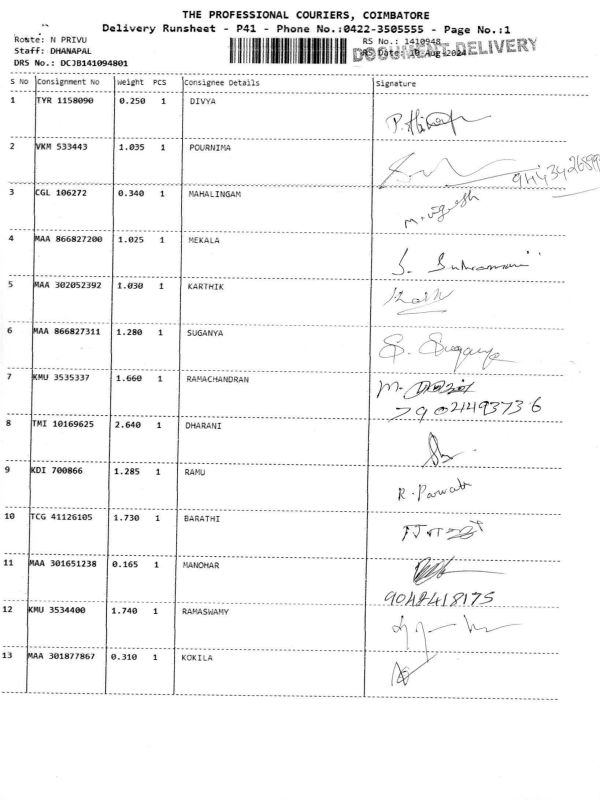 THE PROFESSIONAL COURIERS, COIMBATORE
Delivery Runsheet - P41 - Phone No.:0422-3505555 - Page No.:1
Route: N PRIVU
Staff: DHANAPAL
DRS No.: DCJB141094801
RS No.: 1410948
RS Date: 10-Aug-2024
DOCUMENT DELIVERY
S No Consignment No Weight PCS Consignee Details Signature
1 TYR 1158090 0.250 1 DIVYA
2 VKM 533443 1.035 1 POURNIMA
3 CGL 106272 0.340 1 MAHALINGAM
4 MAA 866827200 1.025 1 MEKALA
5 MAA 302052392 1.030 1 KARTHIK
6 MAA 866827311 1.280 1 SUGANYA S. Suganya
7 KMU 3535337 1.660 1 RAMACHANDRAN
79024493736
8 TMI 10169625 2.640 1 DHARANI
9 KDI 700866 1.285 1 RAMU
10 TCG 41126105 1.730 1 BARATHI
11 MAA 301651238 0.165 1 MANOHAR
9048418175
12 KMU 3534400 1.740 1 RAMASWAMY
13 MAA 301877867 0.310 1 KOKILA